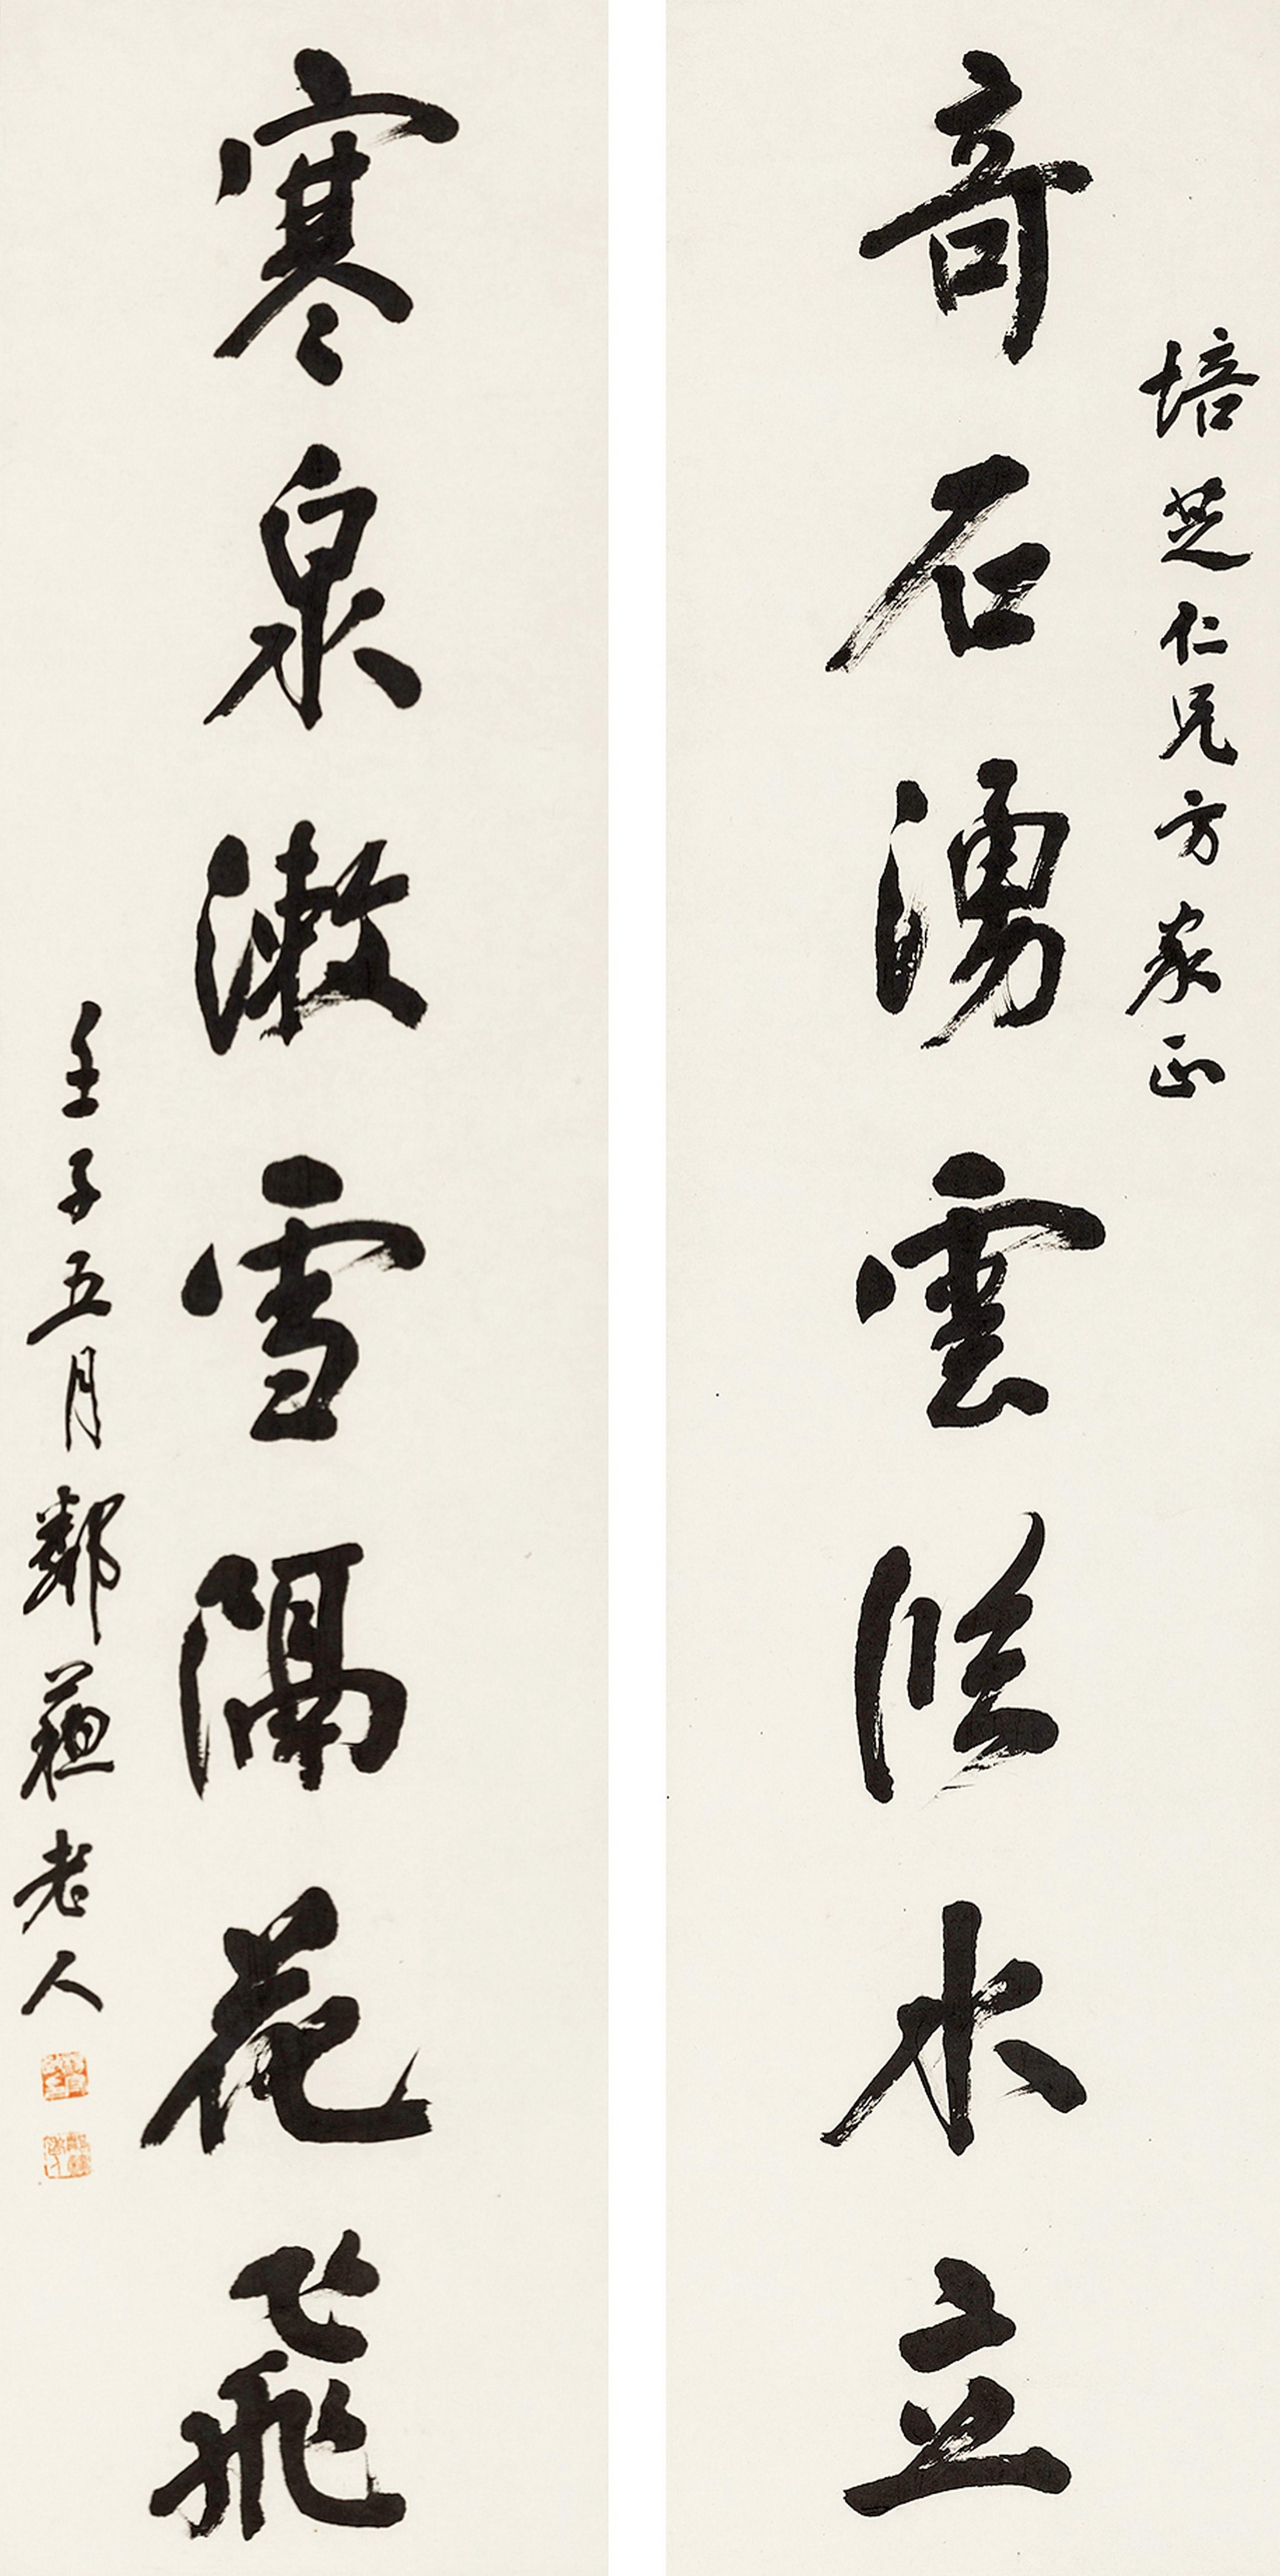 培芝仁兄方家正
竒石湧雲從水立
寒泉漱雪隔花飛
壬子五月鄰蘇老人